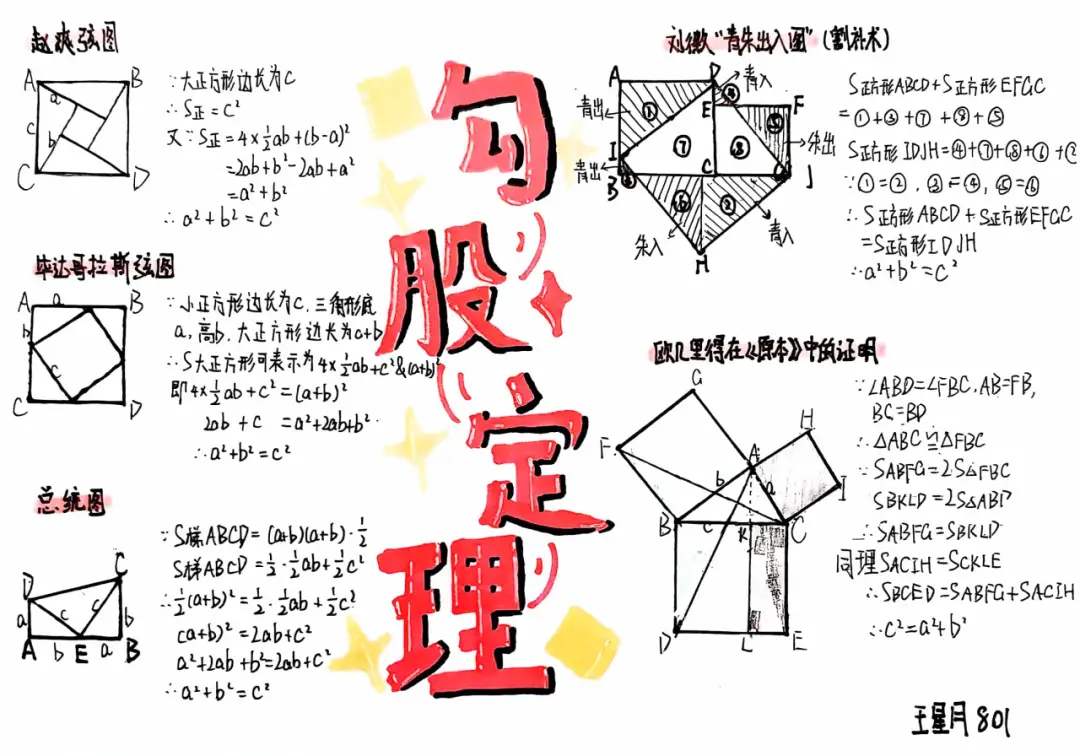 赵爽弦图
A
B
a
c
b
C
D
∵大正方形边长为c
∴S正=c²
又∵S正=4×½ab+(b-a)²
=2ab+b²-2ab+a²
=a²+b²
∴a²+b²=c²
毕达哥拉斯弦图
A
a
B
b
c
C
D
∵小正方形边长为c,三角形底
a,高b,大正方形边长为a+b
∴S大正方形可表示为4×½ab+c²&(a+b)²
即4×½ab+c²=(a+b)²
2ab+c=a²+2ab+b²
∴a²+b²=c²
总统图
C
D
a
c
c
b
A
b
E
a
B
∵S梯ABCD=(a+b)(a+b)·½
S梯ABCD=½·½ab+½c²
∴½(a+b)²=½·½ab+½c²
(a+b)²=2ab+c²
a²+2ab+b²=2ab+c²
∴a²+b²=c²
勾
股
定
理
刘徽“青朱出入图”(割补术)
A
D
青入
青出
①
④
E
F
⑤
朱出
I
⑦
⑧
青出
B
③
C
J
⑥
②
朱入
青入
H
S正方形ABCD+S正方形EFGC
=①+③+⑦+⑧+⑤
S正方形IDJH=④+⑦+⑧+⑥+②
∵①=②,③=④,⑤=⑥
∴S正方形ABCD+S正方形EFGC
=S正方形IDJH
∴a²+b²=c²
欧几里得在《原本》中的证明
G
H
F
A
b
a
I
B
c
K
C
D
L
E
∵∠ABD=∠FBC,AB=FB,
BC=BD
∴△ABC≌△FBC
∵SABFG=2S△FBC
SBKLD=2S△ABD
∴SABFG=SBKLD
同理SACIH=SCKLE
∴SBCED=SABFG+SACIH
∴c²=a²+b²
王星月 801